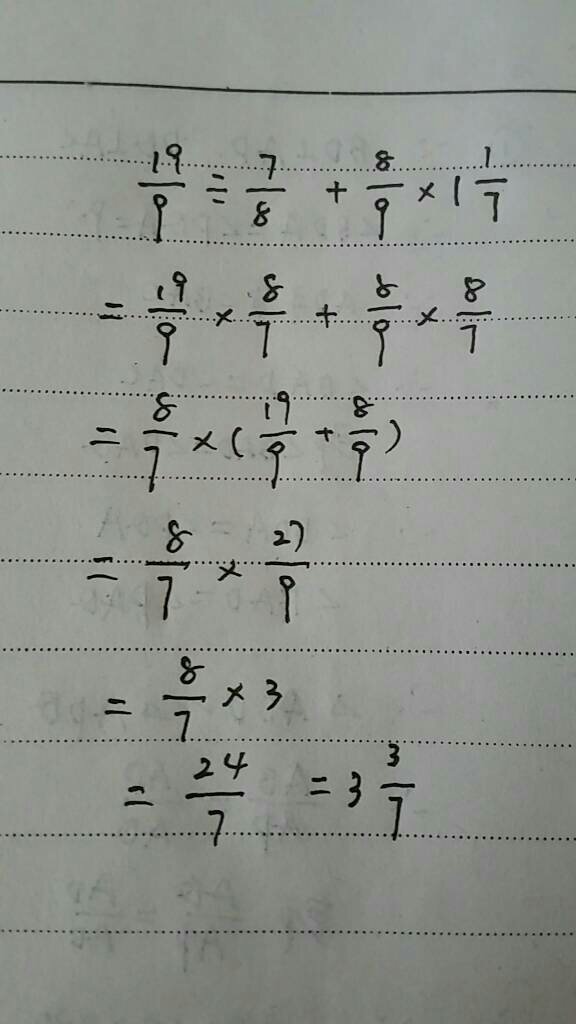 19/9 ÷ 7/8 + 8/9 × 1 1/7
= 19/9 × 8/7 + 8/9 × 8/7
= 8/7 × (19/9 + 8/9)
= 8/7 × 27/9
= 8/7 × 3
= 24/7 = 3 3/7